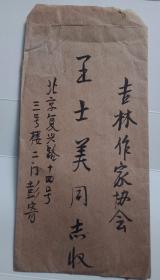 吉林作家协会
王士美同志收
北京复兴路十四号
三号楼二门彭寄